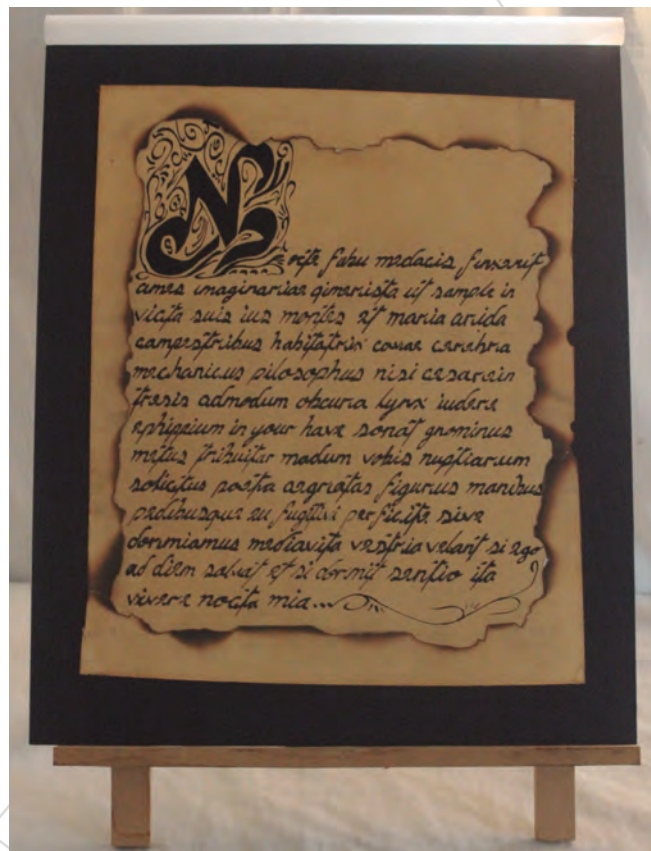 Nocte fabu medacia finxerit
umes imaginariae qimerista uit sample in
victa suis ius montes et maria arida
campestribus habitatrix comae cerebria
mechanicus pilosophus nisi cesarein
tresis admodum obscuria lynx iudere
ephippium in your have sonat gnominus
metus tribuitar modum vobis nuptiarum
solicitus postra aegriotas figurius manibus
pedibusque eu fugitivi perficite sive
dormiamus mediavita vestria velant si ego
ad diem saluit et si dormit sentio ita
vivere nocita mia...